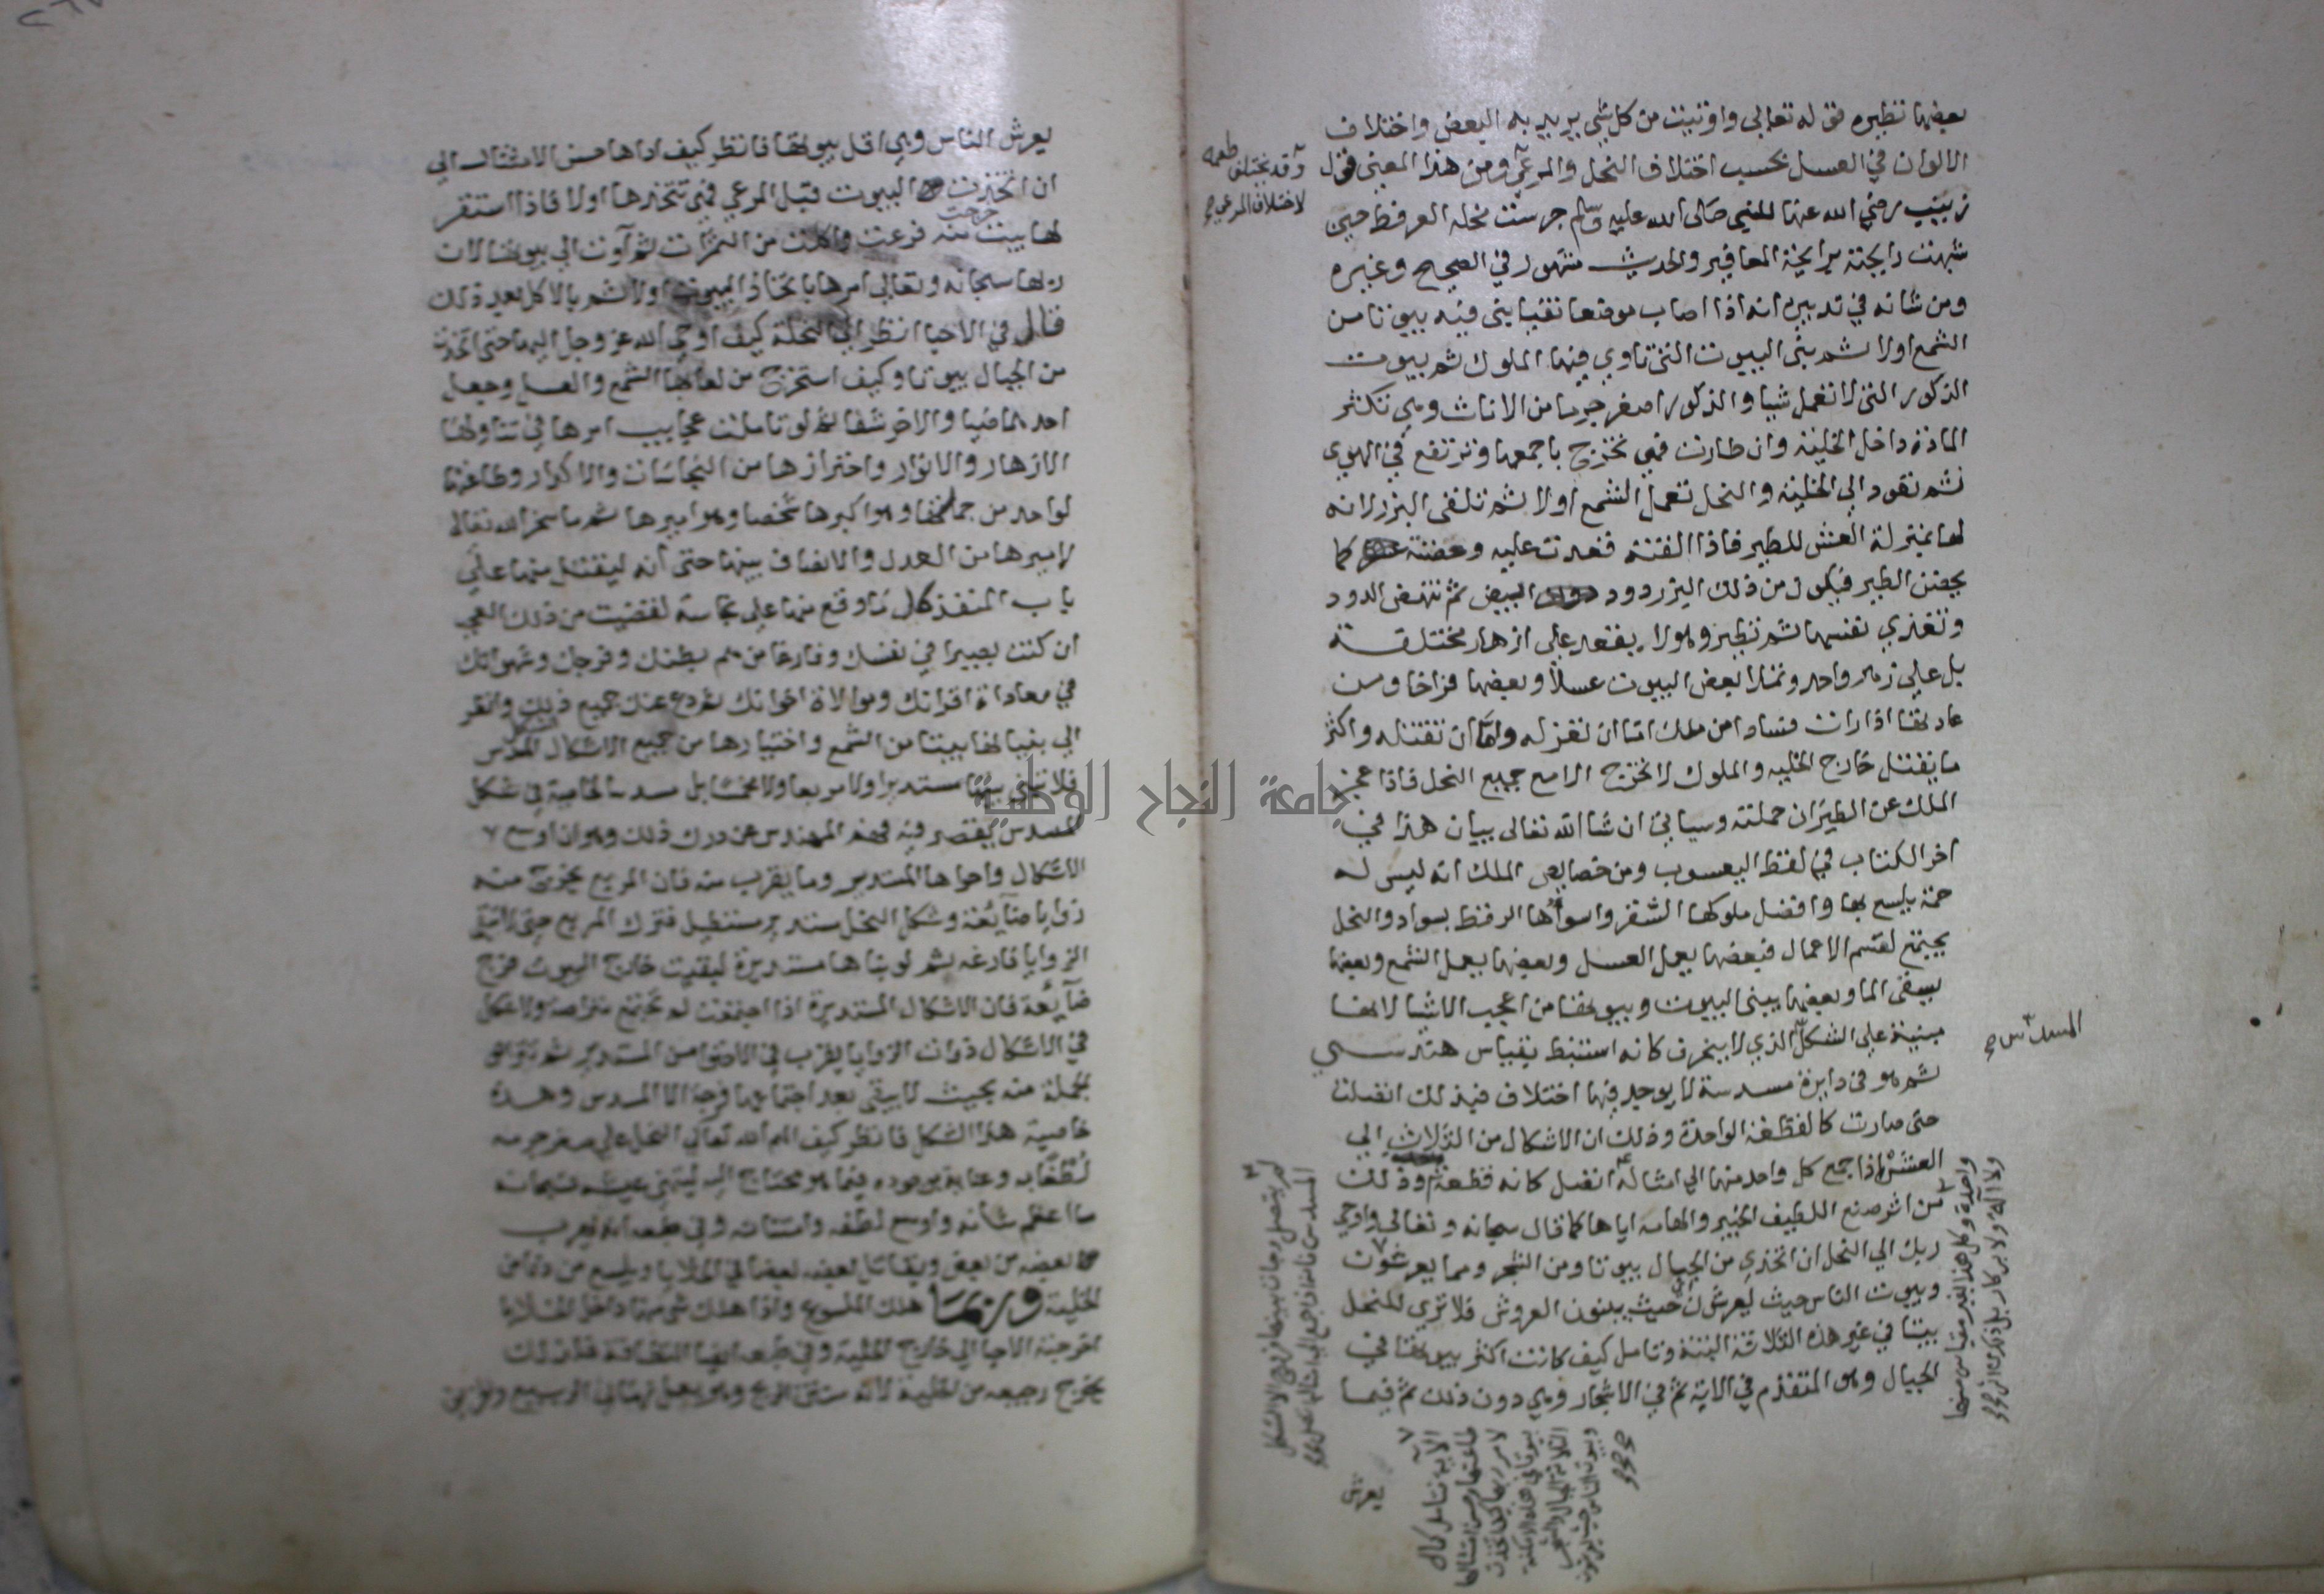 بعضها نظيره قوله تعالى واوتيت من كل شي يريد به البعض واختلاف
الالوان في العسل بحسب اختلاف النحل والمرعى ومن هذا المعنى قول
وقد يختلف طعمه
لاختلاف المرعى صح
زينب رضي الله عنها للنبي صلى الله عليه وسلم جرست نحله العرفط حين
شبهت رايحته برايحة المغافير والحديث مشهور في الصحيح وغيره
ومن شانه في تدبيره انه اذا اصاب موقعا نقيا بنى فيه بيوتا من
الشمع اولا ثم بنى البيوت التي تاوي فيها الملوك ثم بيوت
الذكور التي لا تعمل شيا والذكور اصغر جرما من الاناث وهي تكثر
المادة داخل الخلية وان طارت فهي تخرج باجمعها وترتفع في الهوى
ثم تعود الى الخلية والنحل تعمل الشمع اولا ثم تلقى البزر لانه
لها بمنزلة العش للطير فاذا القته قعدت عليه وحضنته كما
يحضن الطير فيكون من ذلك البزر دود ابيض ثم تنهض الدود
وتغذي نفسها ثم تطير وهو لا يقعد على ازهار مختلفة
بل على زهر واحد وتملا بعض البيوت عسلا وبعضها فراخا ومن
عادتها اذا رات فسادا من ملك اما ان تعزله واما ان تقتله واكثر
ما يقتل خارج الخلية والملوك لا تخرج الا مع جميع النحل فاذا عجز
الملك عن الطيران حملته وسياتي ان شا الله تعالى بيان هذا في
اخر الكتاب في لفظ اليعسوب ومن خصايص الملك انه ليس له
حمة يلسع بها وافضل ملوكها الشقر واسواها الرقط بسواد والنحل
يجتمع لقسم الاعمال فبعضها يعمل العسل وبعضها يعمل الشمع وبعضها
يسقى الما وبعضها يبنى البيوت وبيوتها من اعجب الاشيا لانها
مبنية على الشكل الذي لا ينحرف كانه استنبط بقياس هندسي
المسدس صح
ثم هو في دايرة مسدسة لا يوجد فيها اختلاف فبذلك اتصلت
حتى صارت كالقطعة الواحدة وذلك ان الاشكال من الثلاث الى
العشر اذا جمع كل واحد منها الى امثاله اتصل كانه قطعة وذلك
من اثر صنع اللطيف الخبير والهامه اياها كما قال سبحانه وتعالى واوحى
ربك الى النحل ان اتخذي من الجبال بيوتا ومن الشجر ومما يعرشون
وبيوت الناس حيث يعرشون حيث يبنون العروش فلا ترى للنحل
بيتا في غير هذه الثلاثة البتة وتامل كيف كانت اكثر بيوتها في
الجبال وهو المتقدم في الاية ثم في الاشجار وهي دون ذلك ثم فيما
لم يتصل وجات بينها فروج الا الشكل
المسدس فانه اذا جمع الى امثاله
واحدة وكل هذا بغير مقياس منها
ولا آلة ولا بركار بل ذلك من اثر صح
الاية تامل كمال
طاعتها وحسن امتثالها
لامر ربها كيف اتخذت
بيوتها في هذه الامكنة
الثلاثة الجبال والشجر
وبيوت الناس حيث يعرشون
يعرش
يعرش الناس وهي اقل بيوتها فانظر كيف اداها حسن الامتثال الى
ان اتخذت البيوت قبل المرعى فهي تتخذها اولا فاذا استقر
لها بيت خرجت منه فرعت واكلت من الثمرات ثم آوت الى بيوتها لان
ربها سبحانه وتعالى امرها باتخاذ البيوت اولا ثم بالاكل بعد ذلك
قال في الاحيا انظر الى النحلة كيف اوحى الله عز وجل اليها حتى اتخذت
من الجبال بيوتا وكيف استخرج من لعابها الشمع والعسل وجعل
احدهما ضيا والاخر شفا ثم لو تاملت عجايب امرها في تناولها
الازهار والانوار واحترازها من النجاسات والاكدار وطاعتها
لواحد من جملتها وهو اكبرها شخصا وهو اميرها ثم ما سخر الله تعالى
لاميرها من العدل والانصاف بينها حتى انه ليقتل منها على
باب المنفذ كل ما وقع منها على نجاسة لقضيت من ذلك العجب
ان كنت بصيرا في نفسك وفارغا من هم بطنك وفرجك وشهواتك
في معاداة اقرانك وموالاة اخوانك ثم دع عنك جميع ذلك وانظر
الى بنيانها بيتا من الشمع واختيارها من جميع الاشكال المسدس
فلا تبني بيتا مستديرا ولا مربعا ولا مخمسا بل مسدسا لخاصية في شكل
المسدس يقتصر فيه فهم المهندس عن درك ذلك وهو ان اوسع
الاشكال واحواها المستدير وما يقرب منه فان المربع يخرج منه
زوايا ضايعة وشكل النحل مستدير مستطيل فترك المربع حتى لا تبقى
الزوايا فارغة ثم لو بناها مستديرة لبقيت خارج البيوت فرج
ضايعة فان الاشكال المستديرة اذا اجتمعت لم تجتمع متراصة ولا شكل
في الاشكال ذوات الزوايا يقرب في الاحتوا من المستدير ثم تتراص
الجملة منه بحيث لا يبقى بعد اجتماعها فرجة الا المسدس وهذه
خاصية هذا الشكل فانظر كيف الهم الله تعالى النحل على صغر جرمه
لطفا به وعناية بوجوده فيما هو محتاج اليه ليتهنى عيشه فسبحانه
ما اعظم شانه واوسع لطفه وامتنانه وفي طبعه انه يهرب
بعضه من بعض ويقاتل بعضه بعضا في الخلايا ويلسع من دنا من
الخلية وربما هلك الملسوع واذا هلك شي منها داخل الخلايا
اخرجته الاحيا الى خارج الخلية وفي طبعه ايضا النظافة فلذلك
يخرج رجيعه من الخلية لانه منتن الريح وهو يعمل زماني الربيع والخريف